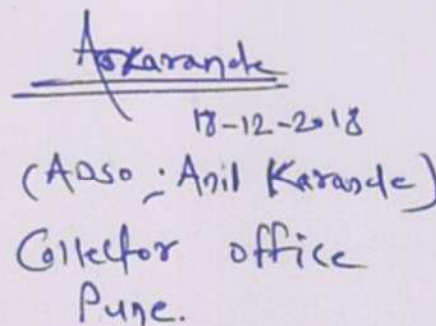 Askarande
18-12-2018
(ADSO; Anil Karande)
Collector office
Pune.